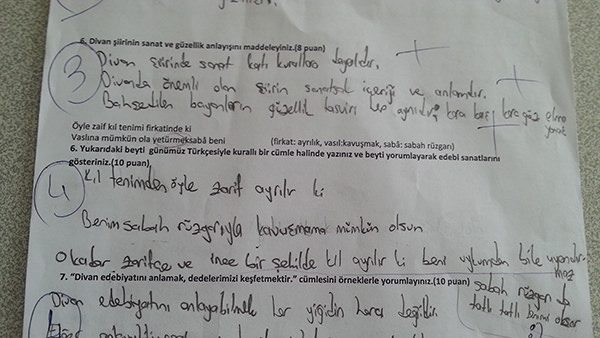 6. Divan şiirinin sanat ve güzellik anlayışını maddeleyiniz.(8 puan)
3
Divan şiirinde sanat katı kurallara dayalıdır.
Divanda önemli olan şiirin sanatsal içeriği ve anlamıdır.
Bahsedilen bayanların güzellik tasviri hep aynıdır; kara kaş, kara göz, elma yanak
Öyle zaif kıl tenimi firkatinde ki
Vaslına mümkün ola yetürmek sabâ beni (firkat: ayrılık, vasıl:kavuşmak, sabâ: sabah rüzgarı)
6. Yukarıdaki beyti günümüz Türkçesiyle kurallı bir cümle halinde yazınız ve beyti yorumlayarak edebi sanatlarını
gösteriniz.(10 puan),
4
Kıl tenimden öyle zarif ayrılır ki
Benim sabah rüzgarıyla kavuşmama mümkün olsun
O kadar zarifçe ve ince bir şekilde kıl ayrılır ki beni uykumdan bile uyandırmaz
7. "Divan edebiyatını anlamak, dedelerimizi keşfetmektir." cümlesini örneklerle yorumlayınız.(10 puan)
sabah rüzgarı da
tatlı tatlı
Divan edebiyatını anlayabilmek her yiğidin harcı değildir.